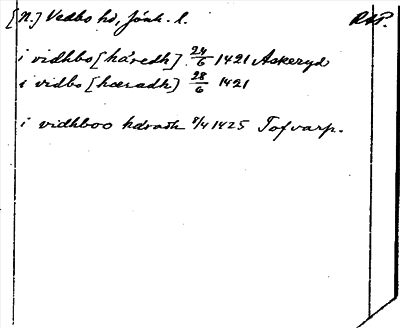 [N.] Vedbo hd, Jönk. l. RAP.
i vidhbo [häredh] 24/6 1421 Askeryd
i vidbo [hæradh] 28/6 1421
i vidhboo hdradh 8/4 1425 Tofvarp.